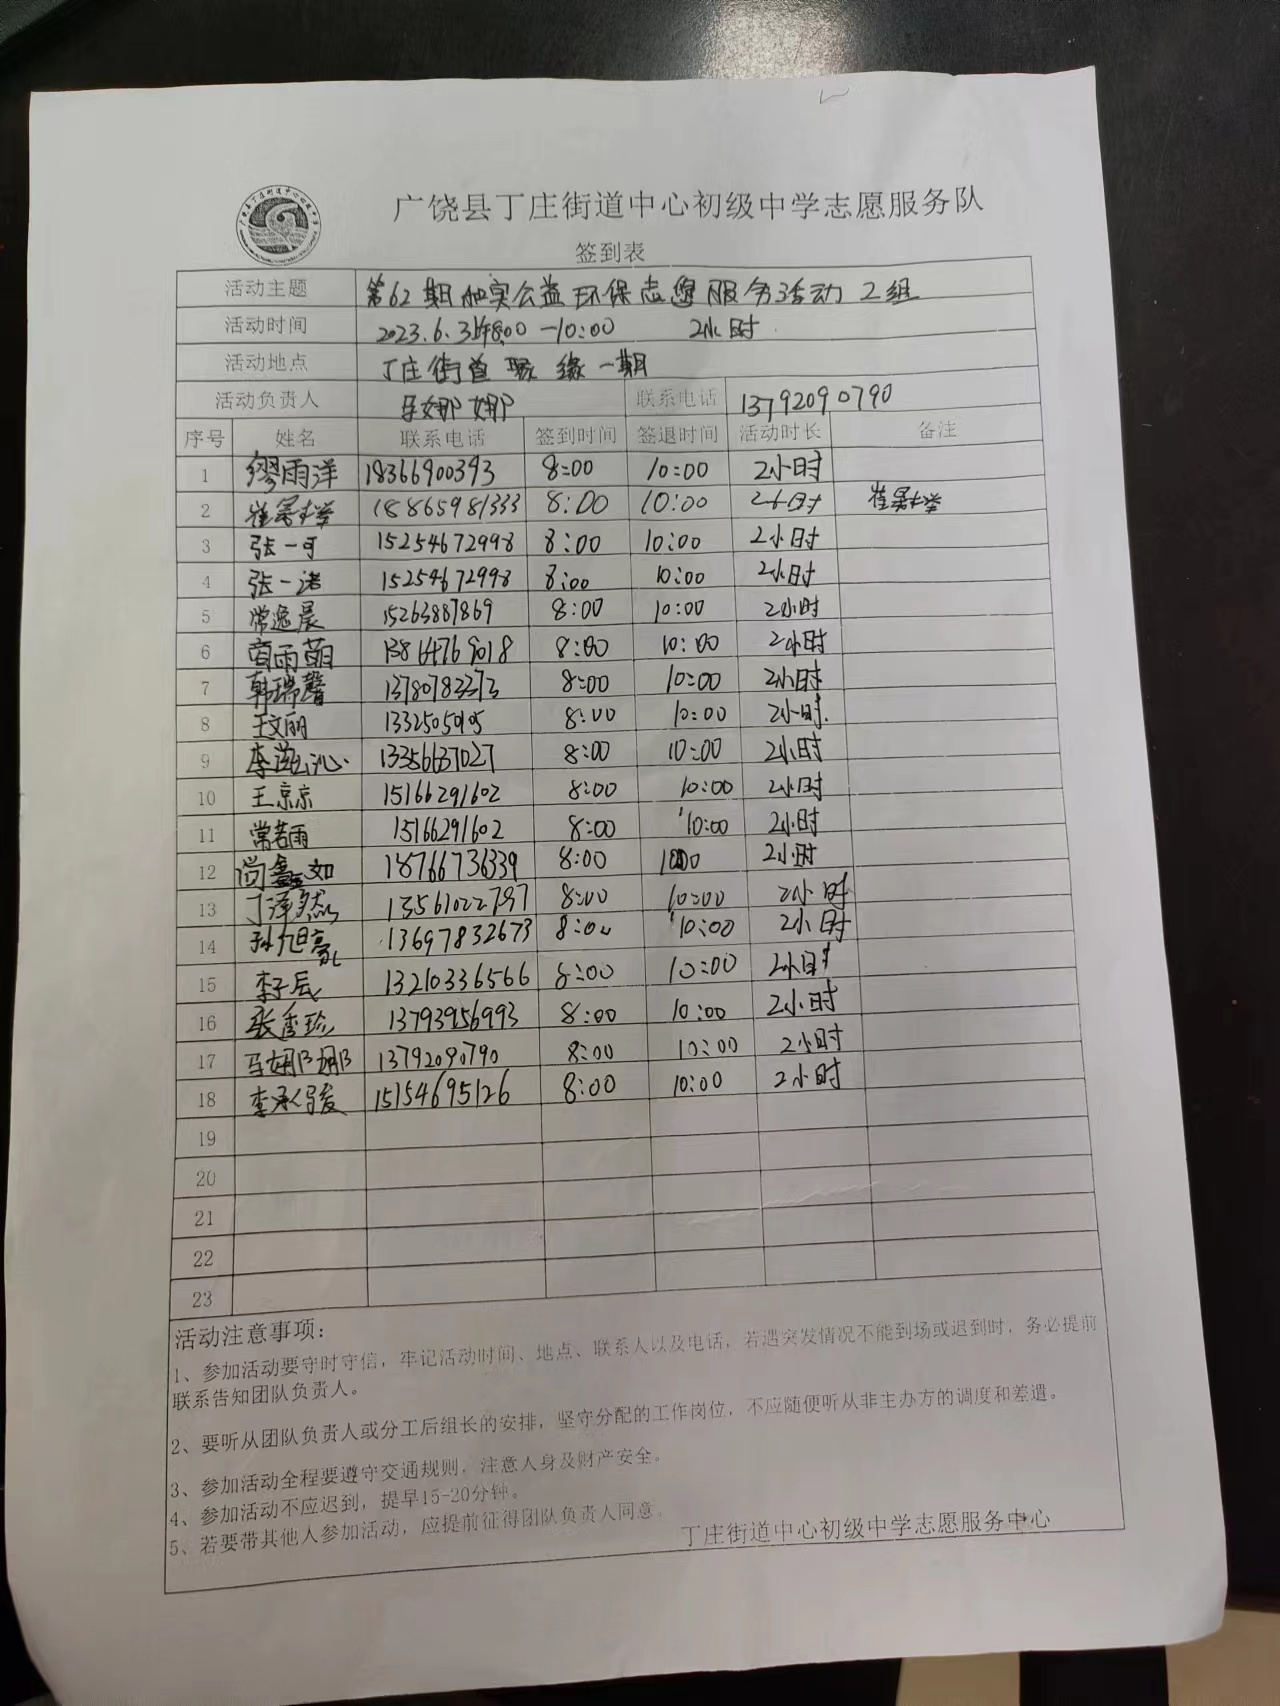 广饶县丁庄街道中心初级中学志愿服务队
签到表
活动主题 第62期和实公益环保志愿服务活动 2组
活动时间 2023.6.3 8:00-10:00 2小时
活动地点 丁庄街道 缘一期
活动负责人 马娜娜 联系电话 13792090790
序号 姓名 联系电话 签到时间 签退时间 活动时长 备注
1 缪雨洋 18366900393 8:00 10:00 2小时
2 18865981333 8:00 10:00 2小时
3 张一可 15254672998 8:00 10:00 2小时
4 张一诺 15254672998 8:00 10:00 2小时
5 常逸晨 15263887869 8:00 10:00 2小时
6 商雨萌 8:00 10:00 2小时
7 韩瑞馨 13780783373 8:00 10:00 2小时
8 王文丽 8:00 10:00 2小时
9 13356637027 8:00 10:00 2小时
10 王京京 15166291602 8:00 10:00 2小时
11 常若雨 15166291602 8:00 10:00 2小时
12 尚鑫如 18766736339 8:00 2小时
13 丁泽然 13561022797 8:00 10:00 2小时
14 孙旭亮 13697832673 8:00 10:00 2小时
15 李子辰 13210336566 8:00 10:00 2小时
16 张秀珍 13793956993 8:00 10:00 2小时
17 马娜娜 13792090790 8:00 10:00 2小时
18 李承骏 15154695126 8:00 10:00 2小时
19
20
21
22
23
活动注意事项:
1、参加活动要守时守信，牢记活动时间、地点、联系人以及电话，若遇突发情况不能到场或迟到时，务必提前
联系告知团队负责人。
2、要听从团队负责人或分工后组长的安排，坚守分配的工作岗位，不应随便听从非主办方的调度和差遣。
3、参加活动全程要遵守交通规则，注意人身及财产安全。
4、参加活动不应迟到，提早15-20分钟。
5、若要带其他人参加活动，应提前征得团队负责人同意。
丁庄街道中心初级中学志愿服务中心